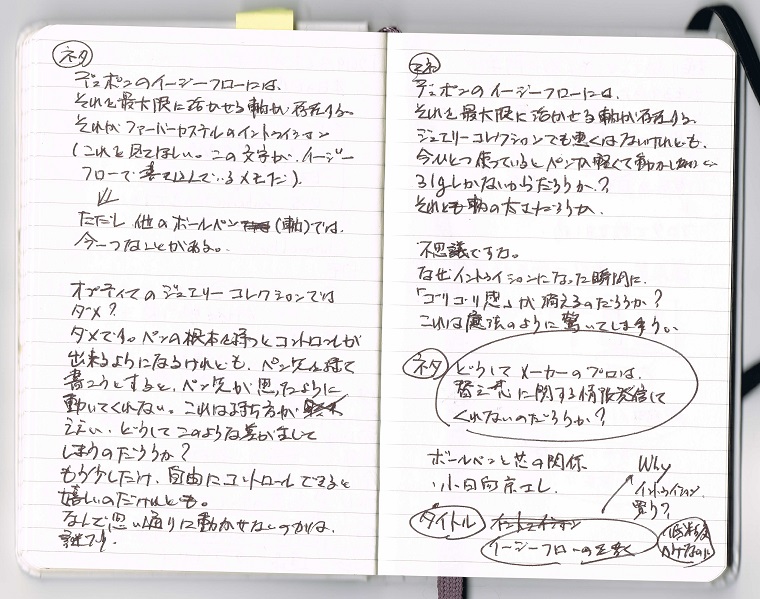 ネタ
デュポンのイージーフローには、
それを最大限に活かせる軸が存在する。
それがファーバーカステルのイントゥイション
(これを見てほしい。この文字が、イージー
フローで書き込んでいるメモだ)。
ただし他のボールペン(軸)では、
今一つなことがある。
オプティマのジュエリーコレクションでは
ダメ?
ダメです。ペンの根本を持つとコントロールが
出来るようになるけれども、ペン先を持って
書こうとすると、ペン先が思ったように
動いてくれない。これは持ち方が
どうしてこのような差が
しまうのだろうか?
もう少しだけ、自由にコントロールできると
嬉しいのだけれども。
なんで思い通りに動かせないのかは、
謎です。
ネタ
デュポンのイージーフローには、
それを最大限に活かせる軸が存在する。
ジュエリーコレクションでも悪くはないけれども、
今ひとつ使っているとペンが軽くて動かし
31gしかないからだろうか?
それとも軸の太さだろうか。
不思議ですね。
なぜイントゥイションになった瞬間に、
「ゴリゴリ感」が消えるのだろうか?
これは魔法のように驚いてしまう。
ネタ
どうしてメーカーのプロは、
替え芯に関する情報発信して
くれないのだろうか?
ボールペンと芯の関係
・小日向京エレ.
Why
イントゥイション
買う?
タイトル イントゥイション
イージーフローの